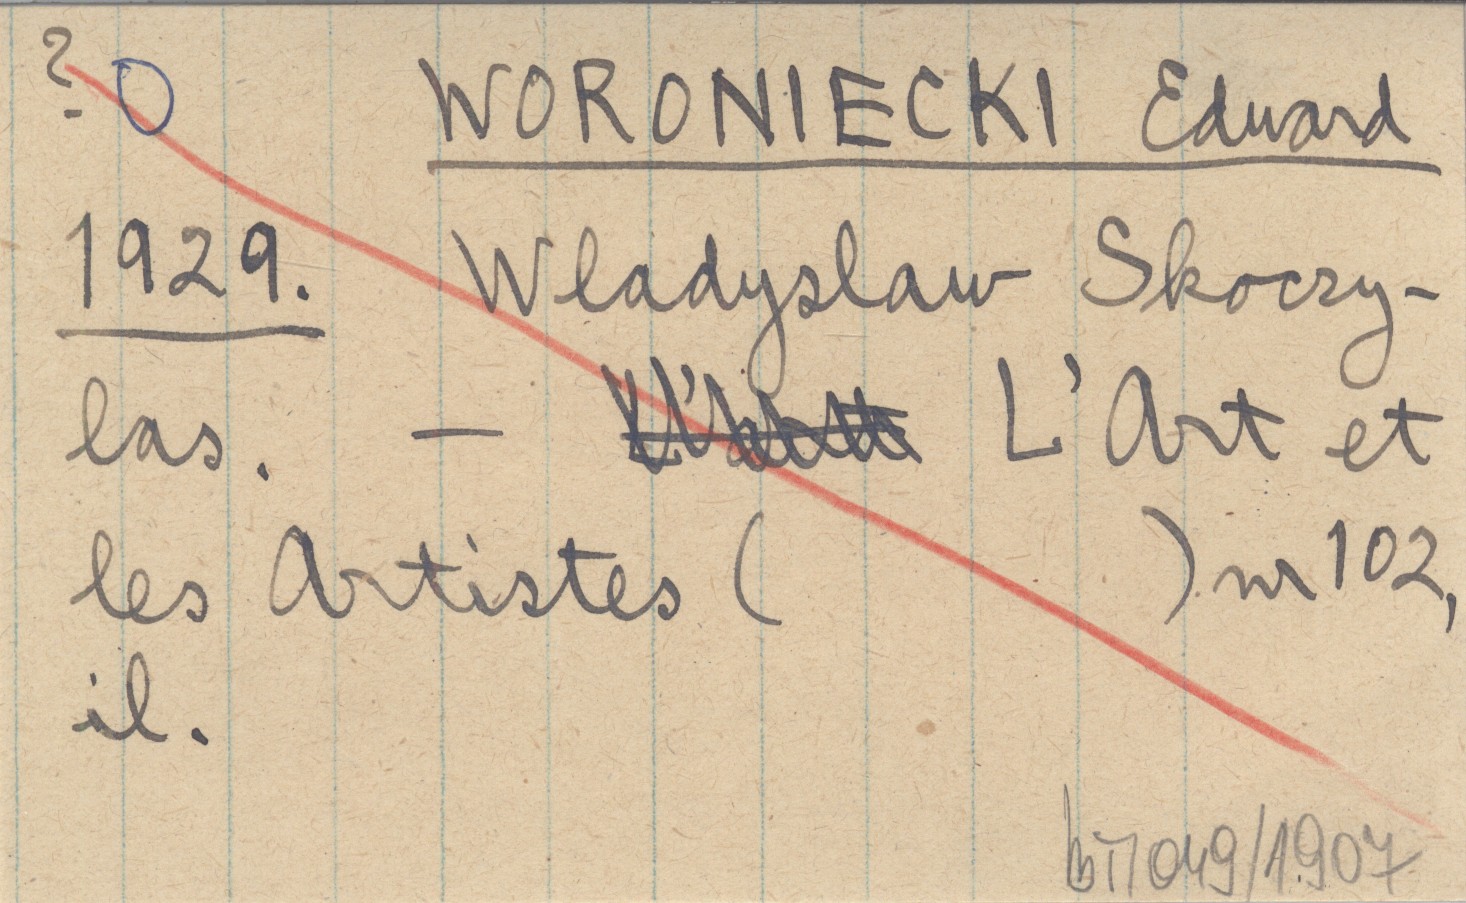 ? O WORONIECKI Edward
1929. Wladyslaw Skoczy-
las. - L'Art et
les Artistes ( ) nr 102,
il.
049/1907